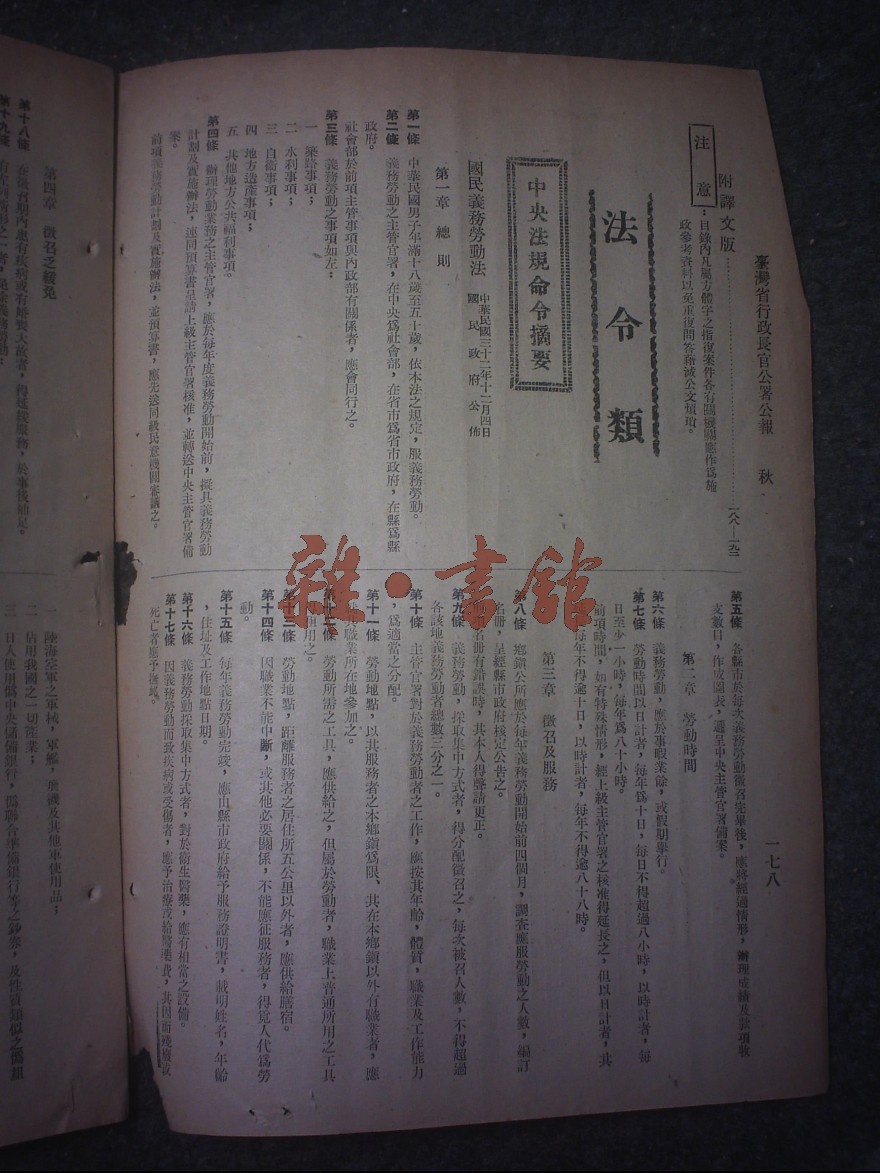 臺灣省行政長官公署公報 秋
一七八
附譯文版……一八八—一九二
注意
：目錄內凡屬方體字之指復案件各有關機關應作為施
政參考資料以免重復問答藉減公文煩瑣。
法令類
中央法規命令摘要
國民義務勞動法
中華民國三十二年十二月四日
國民政府公佈
第一章 總則
第一條 中華民國男子年滿十八歲至五十歲，依本法之規定，服義務勞動。
第二條 義務勞動之主管官署，在中央為社會部，在省市為省市政府，在縣為縣
政府。
社會部於前項主管事項與內政部有關係者，應會同行之。
第三條 義務勞動之事項如左：
一 築路事項；
二 水利事項；
三 自衛事項；
四 地方造產事項；
五 其他地方公共福利事項。
第四條 辦理勞動業務之主管官署，應於每年度義務勞動開始前，擬具義務勞動
計劃及實施辦法，連同預算書呈請上級主管官署核准，並轉送中央主管官署備
案。
前項義務勞動計劃及實施辦法，並預算書，應先送同級民意機關審議之。
第五條 各縣市於每次義務勞動徵召完畢後，應將經過情形，辦理成績及款項收
支數目，作成圖表，遞呈中央主管官署備案。
第二章 勞動時間
第六條 義務勞動，應於事暇業餘，或假期舉行。
第七條 勞動時間以日計者，每年為十日，每日不得超過八小時，以時計者，每
日至少一小時，每年為八十小時。
前項時間，如有特殊情形，經上級主管官署之核准得延長之，但以日計者，其
每年不得逾十日，以時計者，每年不得逾八十八時。
第三章 徵召及服務
第八條 鄉鎮公所應於每年義務勞動開始前四個月，調查應服勞動之人數，編訂
名冊，呈經縣市政府核定公告之。
名冊有錯誤時，其本人得聲請更正。
第九條 義務勞動，採取集中方式者，得分配徵召之，每次被召人數，不得超過
各該地義務勞動者總數三分之一。
第十條 主管官署對於義務勞動者之工作，應按其年齡，體質，職業及工作能力
，為適當之分配。
第十一條 勞動地點，以其服務者之本鄉鎮為限、其在本鄉鎮以外有職業者，應
其職業所在地參加之。
第十二條 勞動所需之工具，應供給之，但屬於勞動者，職業上普通所用之工具
使用之。
第十三條 勞動地點，距離服務者之居住所五公里以外者，應供給膳宿。
第十四條 因職業不能中斷，或其他必要關係，不能應征服務者，得覓人代為勞
動。
第十五條 每年義務勞動完竣，應由縣市政府給予服務證明書，載明姓名，年齡
，住址及工作地點日期。
第十六條 義務勞動採取集中方式者，對於衛生醫藥，應有相當之設備。
第十七條 因義務勞動而致疾病或受傷者，應予治療或給醫藥費，其因而殘廢或
死亡者應予撫卹。
雜·書館
第四章 徵召之緩免
第十八條 在徵召期內患有疾病或有婚喪大故者，得延緩服務，於事後補足。
第十九條 有左列情形之一者，免除義務勞動：
一 陸海空軍之軍械，軍艦，飛機及其他軍使用品；
二 佔用我國之一切產業；
三 日人使用偽中央儲備銀行，偽聯合準備銀行等之鈔票，及性質類似之偽組